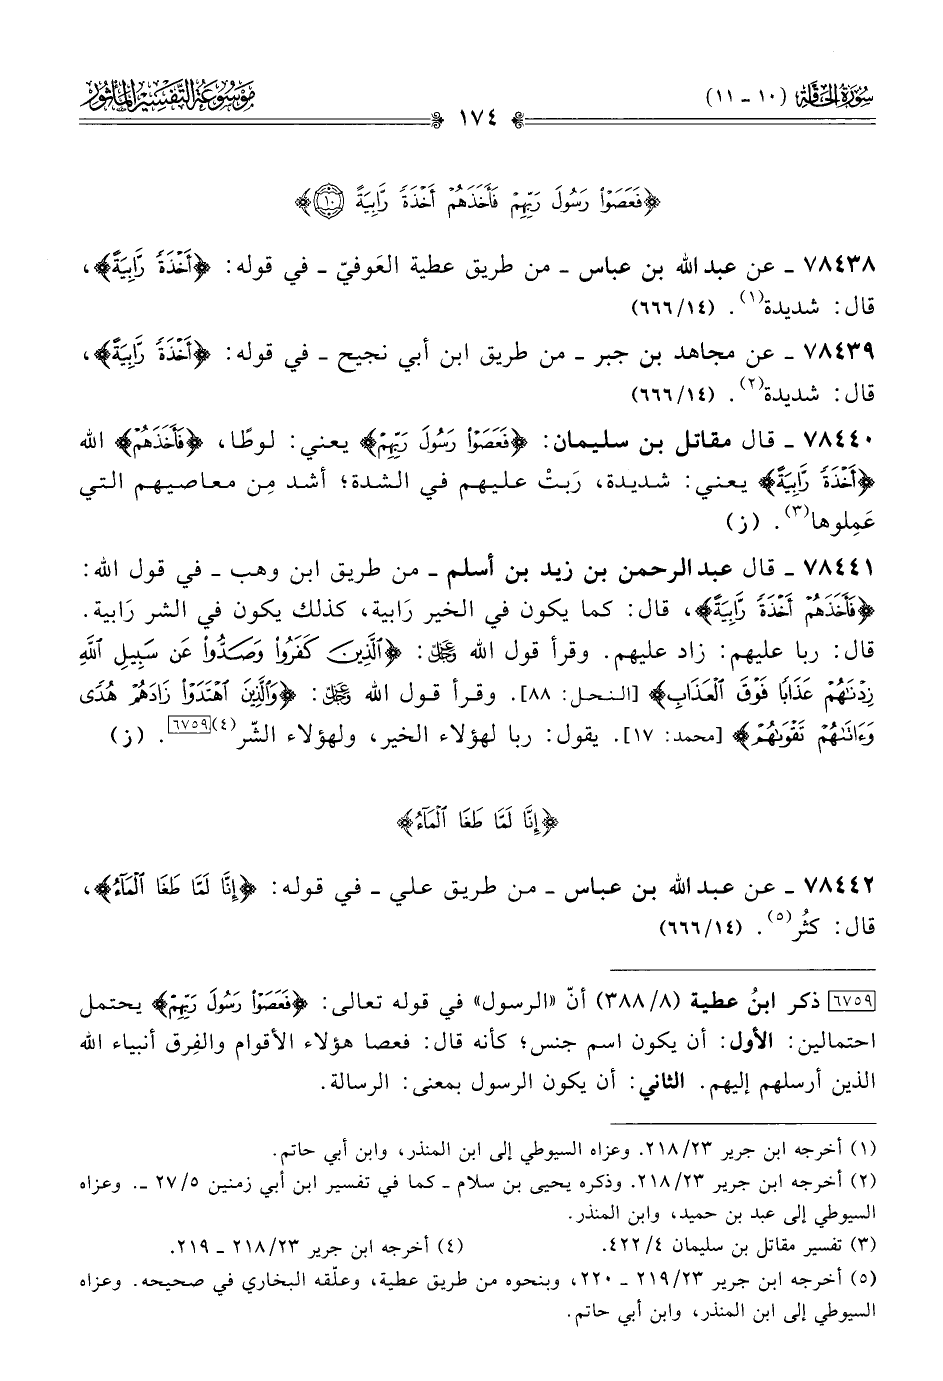 سُورَةُ الحَاقَّة (١٠ - ١١)
مَوْسُوعَةُ التَّفْسِيرِ المَأْثُور
١٧٤
﴿فَعَصَوْا۟ رَسُولَ رَبِّهِمْ فَأَخَذَهُمْ أَخْذَةً رَّابِيَةً ۝١٠﴾
٧٨٤٣٨ ـ عن عبد الله بن عباس ـ من طريق عطية العَوفيّ ـ في قوله: ﴿أَخْذَةً رَّابِيَةً﴾،
قال: شديدة(١). (١٤/٦٦٦)
٧٨٤٣٩ ـ عن مجاهد بن جبر ـ من طريق ابن أبي نجيح ـ في قوله: ﴿أَخْذَةً رَّابِيَةً﴾،
قال: شديدة(٢). (١٤/٦٦٦)
٧٨٤٤٠ ـ قال مقاتل بن سليمان: ﴿فَعَصَوْا۟ رَسُولَ رَبِّهِمْ﴾ يعني: لوطًا، ﴿فَأَخَذَهُمْ﴾ الله
﴿أَخْذَةً رَّابِيَةً﴾ يعني: شديدة، رَبتْ عليهم في الشدة؛ أشد مِن معاصيهم التي
عَمِلوها(٣). (ز)
٧٨٤٤١ ـ قال عبد الرحمن بن زيد بن أسلم ـ من طريق ابن وهب ـ في قول الله:
﴿فَأَخَذَهُمْ أَخْذَةً رَّابِيَةً﴾، قال: كما يكون في الخير رَابية، كذلك يكون في الشر رَابية.
قال: ربا عليهم: زاد عليهم. وقرأ قول الله ﷿: ﴿ٱلَّذِينَ كَفَرُوا۟ وَصَدُّوا۟ عَن سَبِيلِ ٱللَّهِ
زِدْنَٰهُمْ عَذَابًا فَوْقَ ٱلْعَذَابِ﴾ [النحل: ٨٨]. وقرأ قول الله ﷿: ﴿وَٱلَّذِينَ ٱهْتَدَوْا۟ زَادَهُمْ هُدًى
وَءَاتَىٰهُمْ تَقْوَىٰهُمْ﴾ [محمد: ١٧]. يقول: ربا لهؤلاء الخير، ولهؤلاء الشّر(٤)[٦٧٥٩]. (ز)
﴿إِنَّا لَمَّا طَغَا ٱلْمَآءُ﴾
٧٨٤٤٢ ـ عن عبد الله بن عباس ـ من طريق علي ـ في قوله: ﴿إِنَّا لَمَّا طَغَا ٱلْمَآءُ﴾،
قال: كثُر(٥). (١٤/٦٦٦)
[٦٧٥٩] ذكر ابنُ عطية (٨/٣٨٨) أنّ «الرسول» في قوله تعالى: ﴿فَعَصَوْا۟ رَسُولَ رَبِّهِمْ﴾ يحتمل
احتمالين: الأول: أن يكون اسم جنس؛ كأنه قال: فعصا هؤلاء الأقوام والفِرق أنبياء الله
الذين أرسلهم إليهم. الثاني: أن يكون الرسول بمعنى: الرسالة.
(١) أخرجه ابن جرير ٢٣/٢١٨. وعزاه السيوطي إلى ابن المنذر، وابن أبي حاتم.
(٢) أخرجه ابن جرير ٢٣/٢١٨. وذكره يحيى بن سلام ـ كما في تفسير ابن أبي زمنين ٥/٢٧ ـ. وعزاه
السيوطي إلى عبد بن حميد، وابن المنذر.
(٣) تفسير مقاتل بن سليمان ٤/٤٢٢. (٤) أخرجه ابن جرير ٢٣/٢١٨ ـ ٢١٩.
(٥) أخرجه ابن جرير ٢٣/٢١٩ ـ ٢٢٠، وبنحوه من طريق عطية، وعلّقه البخاري في صحيحه. وعزاه
السيوطي إلى ابن المنذر، وابن أبي حاتم.